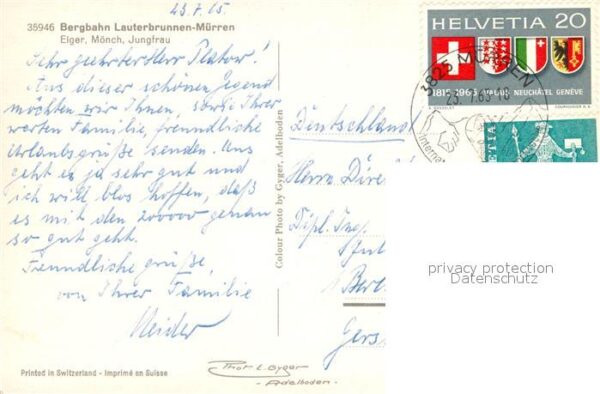 23.7.65
35946 Bergbahn Lauterbrunnen-Mürren
Eiger, Mönch, Jungfrau
Sehr geehrter Herr
Aus dieser schönen Gegend
möchten wir Ihnen, sowie Ihrer
werten Familie, freundliche
Urlaubsgrüße senden. Uns
geht es ja sehr gut und
ich will blos hoffen, daß
es mit den 200000 genau
so gut geht.
Freundliche grüße,
von Ihrer Familie
Printed in Switzerland - Imprimé en Suisse
Colour Photo by Gyger, Adelboden
Phot E. Gyger
- Adelboden -
HELVETIA 20
1815-1965 VALAIS NEUCHÂTEL GENÈVE
COURVOISIER S.A.
3825 MÜRREN
HELVETIA
Deutschland
Herrn
Dipl. Ing.
privacy protection
Datenschutz